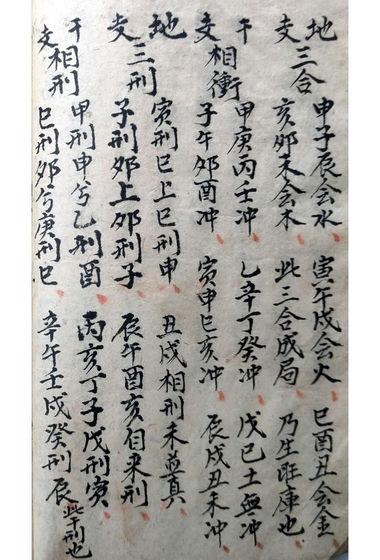 地支三合
申子辰会水 寅午戌会火 巳酉丑会金
亥卯未会木 此三合成局 乃生旺庫也
干支相衝
甲庚丙壬冲 乙辛丁癸冲 戊巳土無冲
子午卯酉冲 寅申巳亥冲 辰戌丑未冲
地支三刑
寅刑巳上巳刑申 丑戌相刑未並真
子刑卯上卯刑子 辰午酉亥自来刑
干支相刑
甲刑申兮乙刑酉 丙亥丁子戊刑寅
巳刑卯兮庚刑巳 辛午壬戌癸刑辰 此干刑也